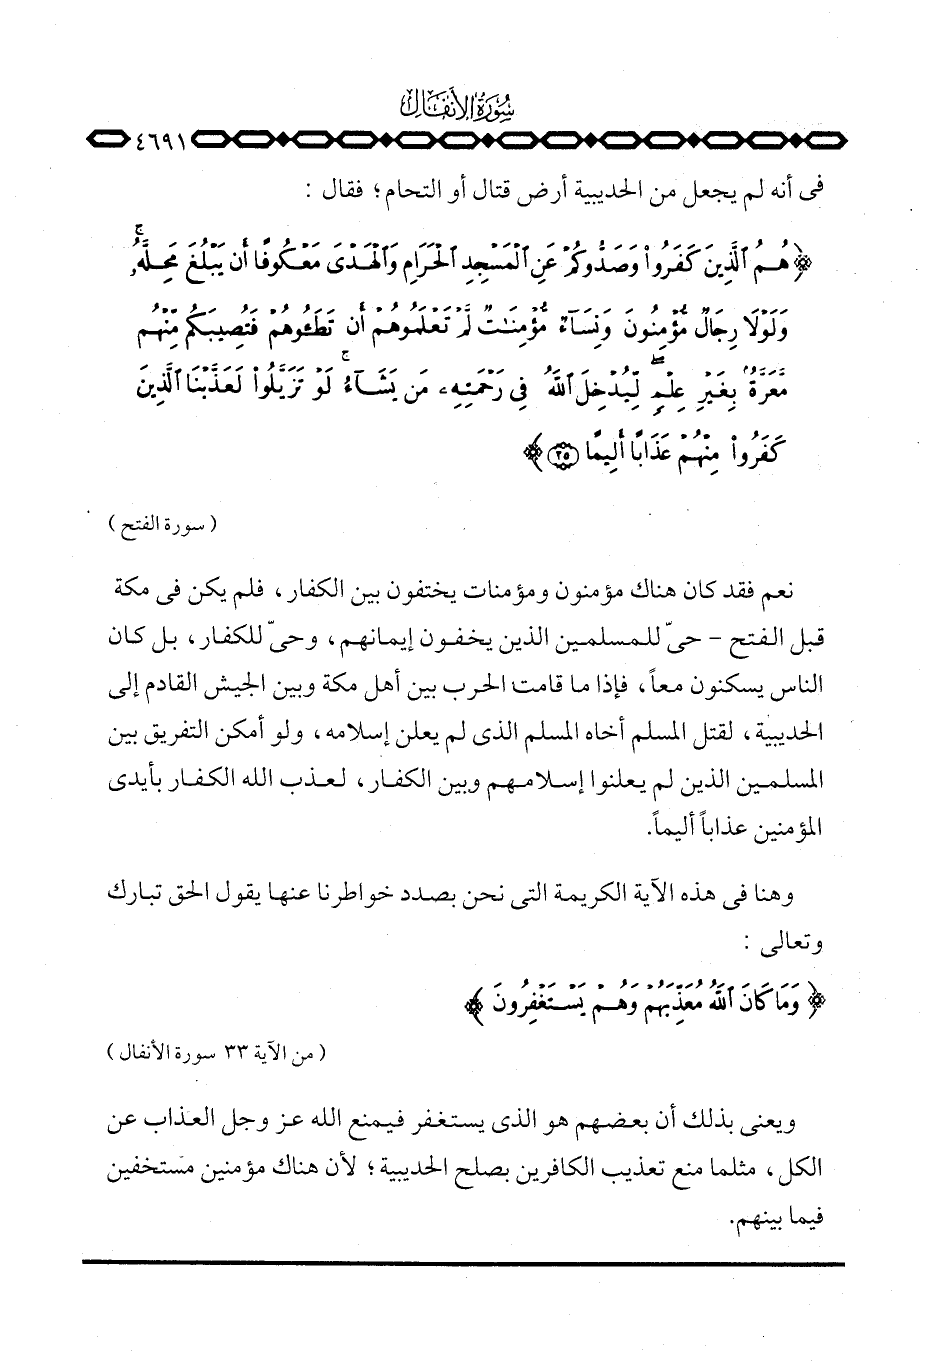 سورة الأنفال
٤٦٩١
فى أنه لم يجعل من الحديبية أرض قتال أو التحام؛ فقال :
﴿ هُمُ ٱلَّذِينَ كَفَرُوا۟ وَصَدُّوكُمْ عَنِ ٱلْمَسْجِدِ ٱلْحَرَامِ وَٱلْهَدْىَ مَعْكُوفًا أَن يَبْلُغَ مَحِلَّهُۥ ۚ
وَلَوْلَا رِجَالٌ مُّؤْمِنُونَ وَنِسَآءٌ مُّؤْمِنَٰتٌ لَّمْ تَعْلَمُوهُمْ أَن تَطَـُٔوهُمْ فَتُصِيبَكُم مِّنْهُم
مَّعَرَّةٌۢ بِغَيْرِ عِلْمٍ ۖ لِّيُدْخِلَ ٱللَّهُ فِى رَحْمَتِهِۦ مَن يَشَآءُ ۚ لَوْ تَزَيَّلُوا۟ لَعَذَّبْنَا ٱلَّذِينَ
كَفَرُوا۟ مِنْهُمْ عَذَابًا أَلِيمًا ٢٥ ﴾
( سورة الفتح )
نعم فقد كان هناك مؤمنون ومؤمنات يختفون بين الكفار، فلم يكن فى مكة
قبل الفتح - حىّ للمسلمين الذين يخفون إيمانهم، وحىّ للكفار، بل كان
الناس يسكنون معاً، فإذا ما قامت الحرب بين أهل مكة وبين الجيش القادم إلى
الحديبية، لقتل المسلم أخاه المسلم الذى لم يعلن إسلامه، ولو أمكن التفريق بين
المسلمين الذين لم يعلنوا إسلامهم وبين الكفار، لعذب الله الكفار بأيدى
المؤمنين عذاباً أليماً.
وهنا فى هذه الآية الكريمة التى نحن بصدد خواطرنا عنها يقول الحق تبارك
وتعالى :
﴿ وَمَا كَانَ ٱللَّهُ مُعَذِّبَهُمْ وَهُمْ يَسْتَغْفِرُونَ ﴾
( من الآية ٣٣ سورة الأنفال )
ويعنى بذلك أن بعضهم هو الذى يستغفر فيمنع الله عز وجل العذاب عن
الكل، مثلما منع تعذيب الكافرين بصلح الحديبية؛ لأن هناك مؤمنين مستخفين
فيما بينهم.